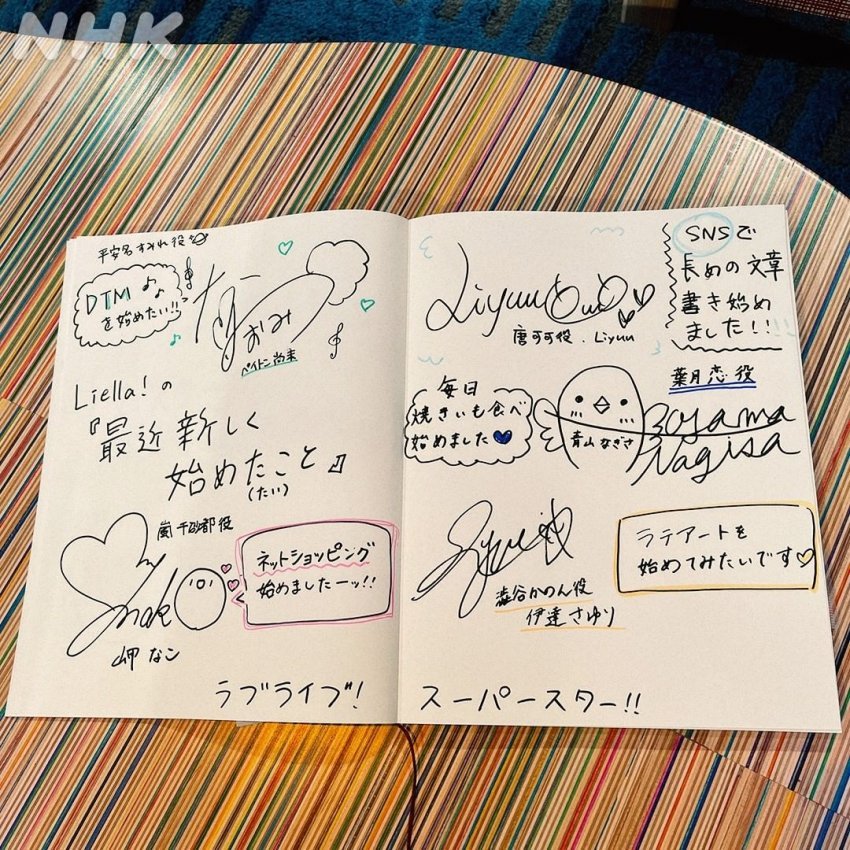 NHK
平安名すみれ役
DTM
を始めたい!!
なおみ
ペイトン尚未
Liella!の
『最近新しく
始めたこと』
(たい)
嵐 千砂都役
nako
岬 なこ
ネットショッピング
始めましたーッ!!
ラブライブ!
Liyuu
唐可可役.Liyuu
SNSで
長めの文章
書き始め
ました!!
葉月恋役
毎日
焼きいも食べ
始めました
青山なぎさ
Aoyama
Nagisa
澁谷かのん役
伊達さゆり
ラテアートを
始めてみたいです
スーパースター!!